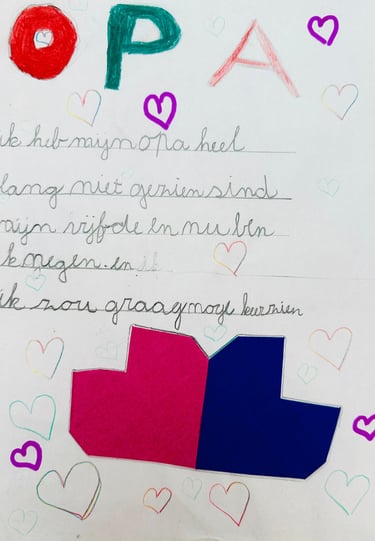 OPA
ik heb mijn opa heel
lang niet gezien sind
mijn vijfde en nu ben
k negen. en
ik zou graag